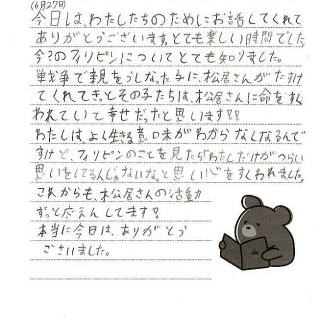 (6月27日)
今日は、わたしたちのためにお話してくれて
ありがとうございます。とても楽しい時間でした。
今のフィリピンについてとても知りました。
戦争で親をうしなった子に、松居さんがたすけ
てくれてきっとその子たちは、松居さんに命をすく
われていて幸せだったと思います!!
わたしは、よく生きる意味がわからなくなるんで
すけど、フィリピンのことを見たらわたしだけがつらい
思いをしてるんじゃないな、と思い心をすくわれました。
これからも、松居さんの活動
ずっと応えんしてます!
本当に今日は、ありがとう
ございました。